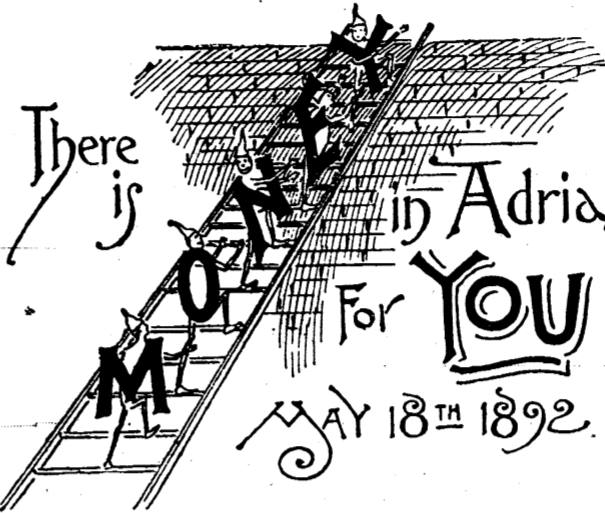 There
is
MONEY
in Adria,
For YOU
MAY 18TH 1892.